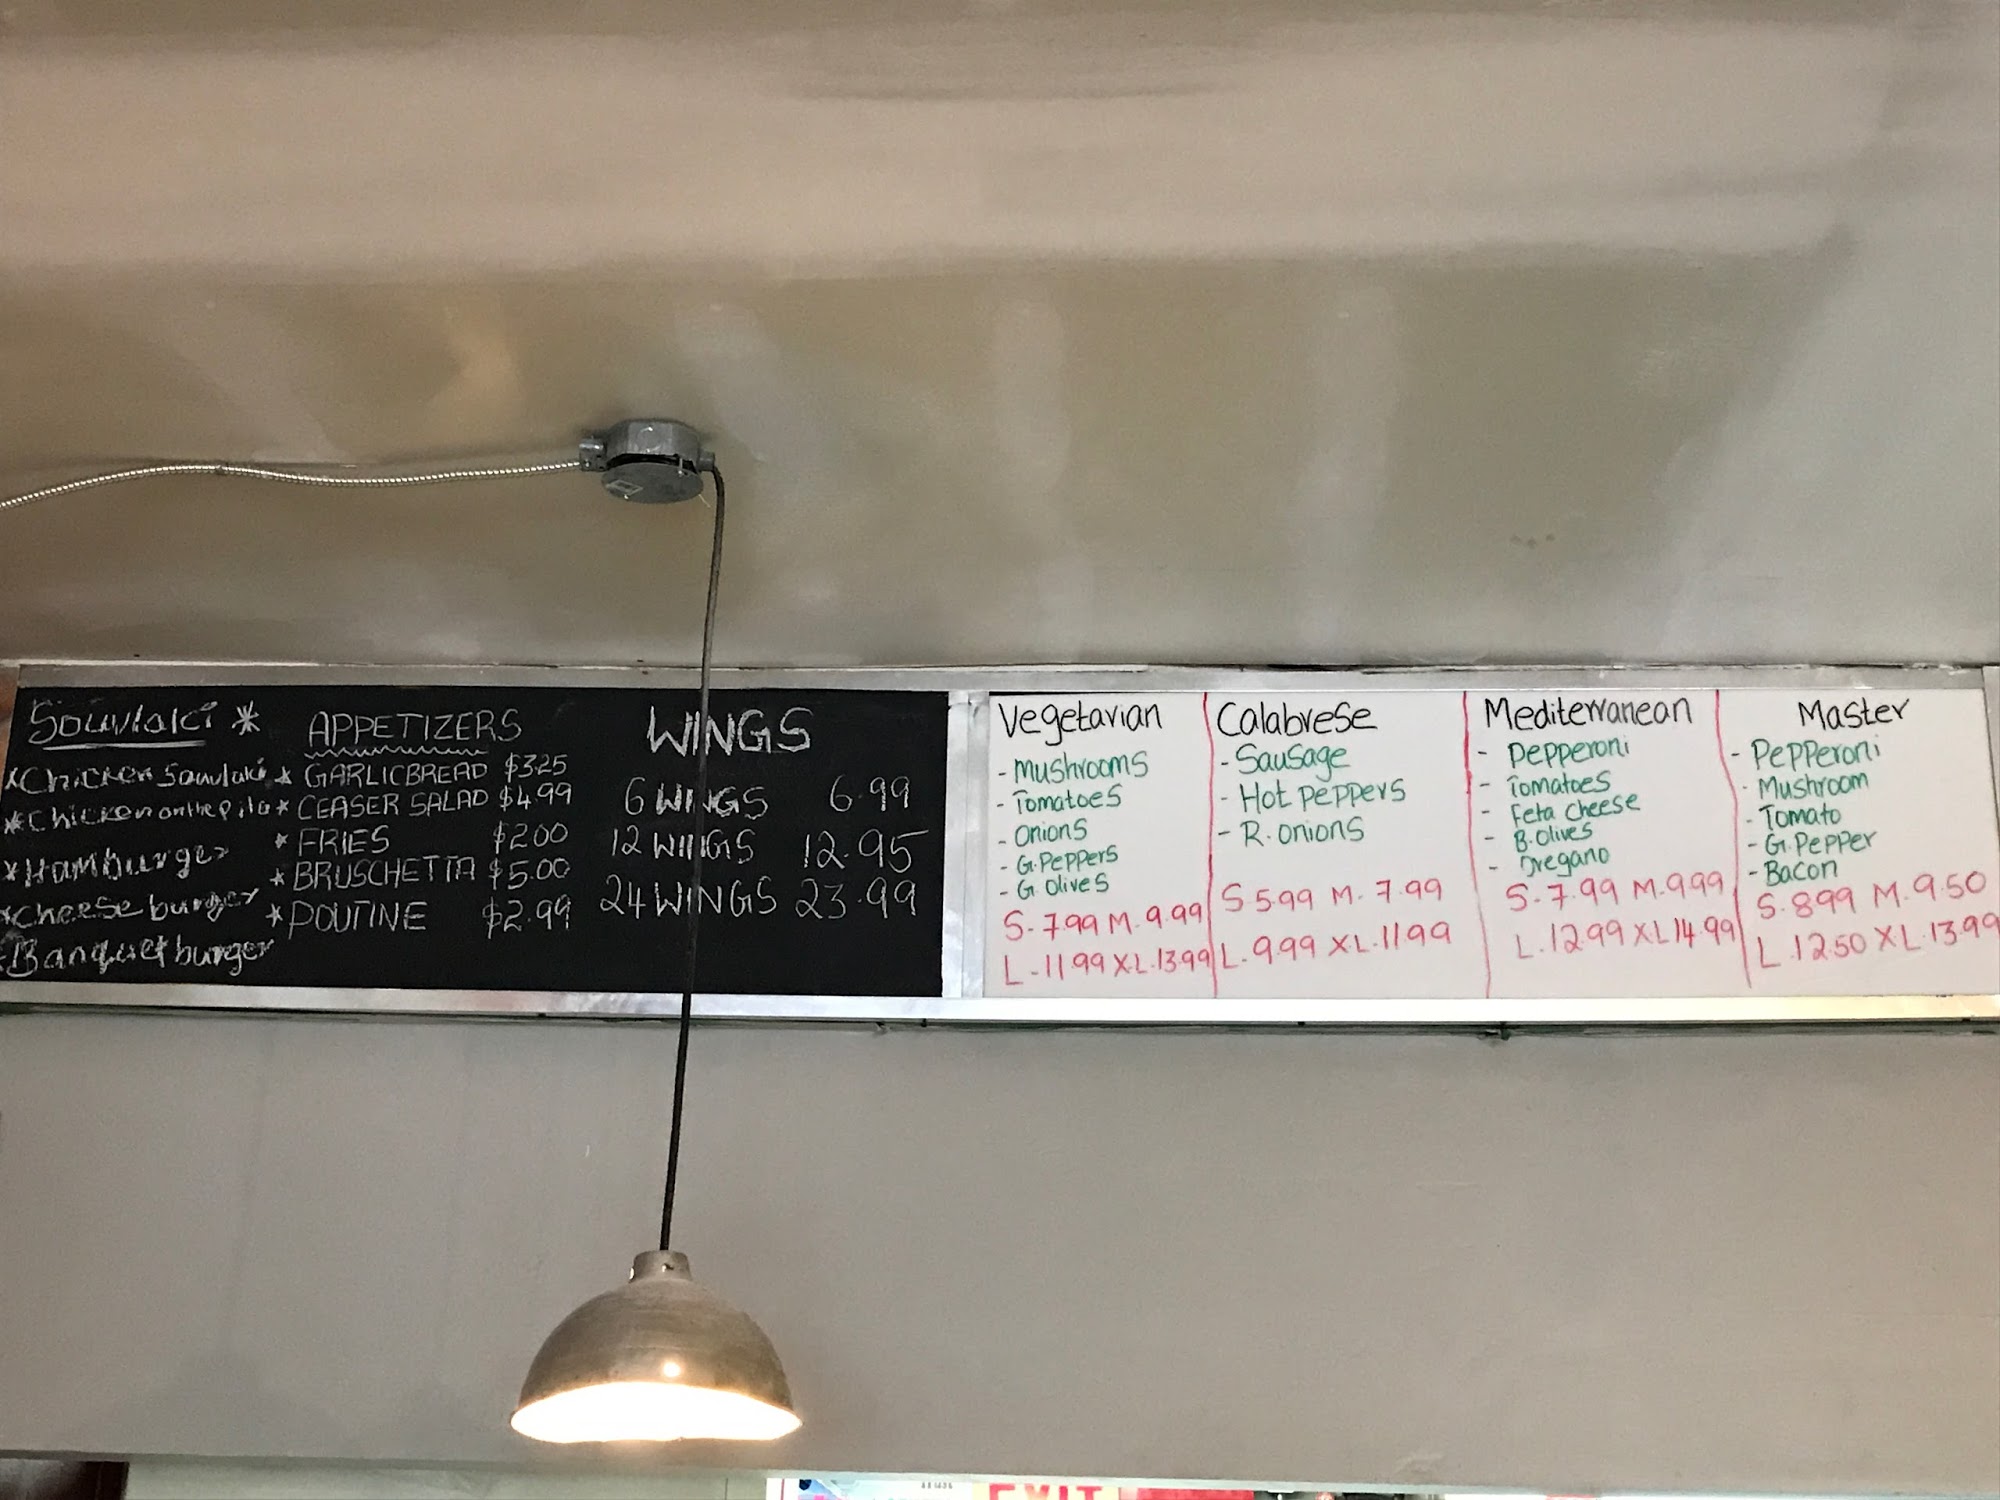 Souvlaki *
*Chicken Souvlaki
*Chicken on the pita
*Hamburger
*Cheese burger
Banquet burger
APPETIZERS
* GARLICBREAD $3.25
* CEASER SALAD $4.99
* FRIES $2.00
* BRUSCHETTA $5.00
* POUTINE $2.99
WINGS
6 WINGS 6.99
12 WINGS 12.95
24 WINGS 23.99
Vegetarian
- Mushrooms
- Tomatoes
- Onions
- G.Peppers
- G.Olives
S-7.99 M.9.99
L-11.99 X.L.13.99
Calabrese
- Sausage
- Hot Peppers
- R.onions
S 5.99 M. 7.99
L-9.99 XL.11.99
Mediterranean
- Pepperoni
- Tomatoes
- Feta cheese
- B.Olives
- Oregano
S-7.99 M.9.99
L.12.99 XL 14.99
Master
- Pepperoni
- Mushroom
- Tomato
- G.Pepper
- Bacon
S.8.99 M.9.50
L.12.50 XL.13.99
EXIT